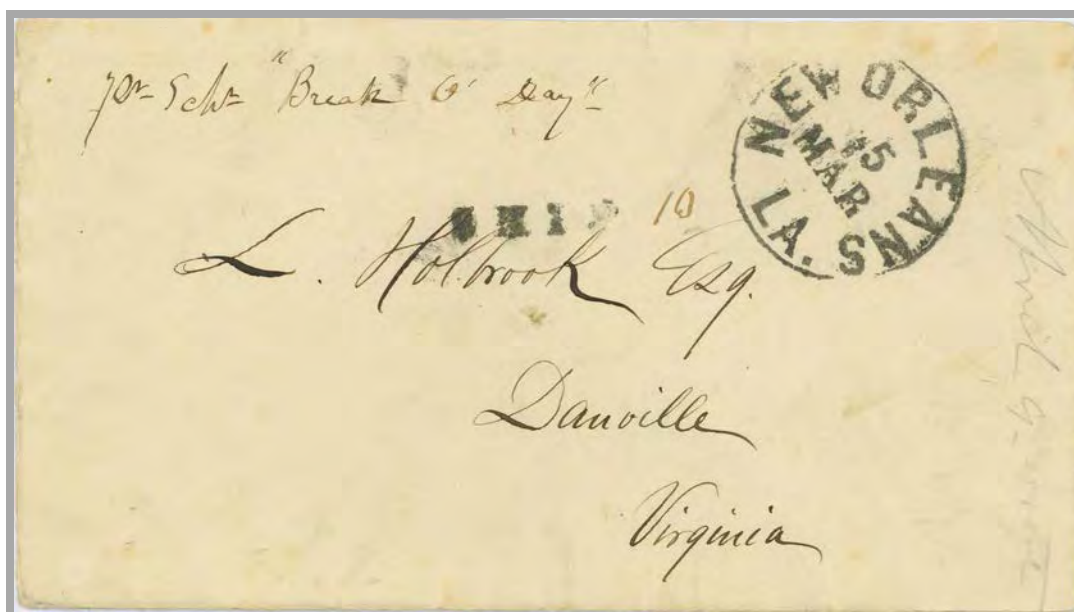 pr Schr "Break O' Day"
NEW ORLEANS LA.
15
MAR
SHIP 10
L. Holbrook Esq.
Danville
Virginia